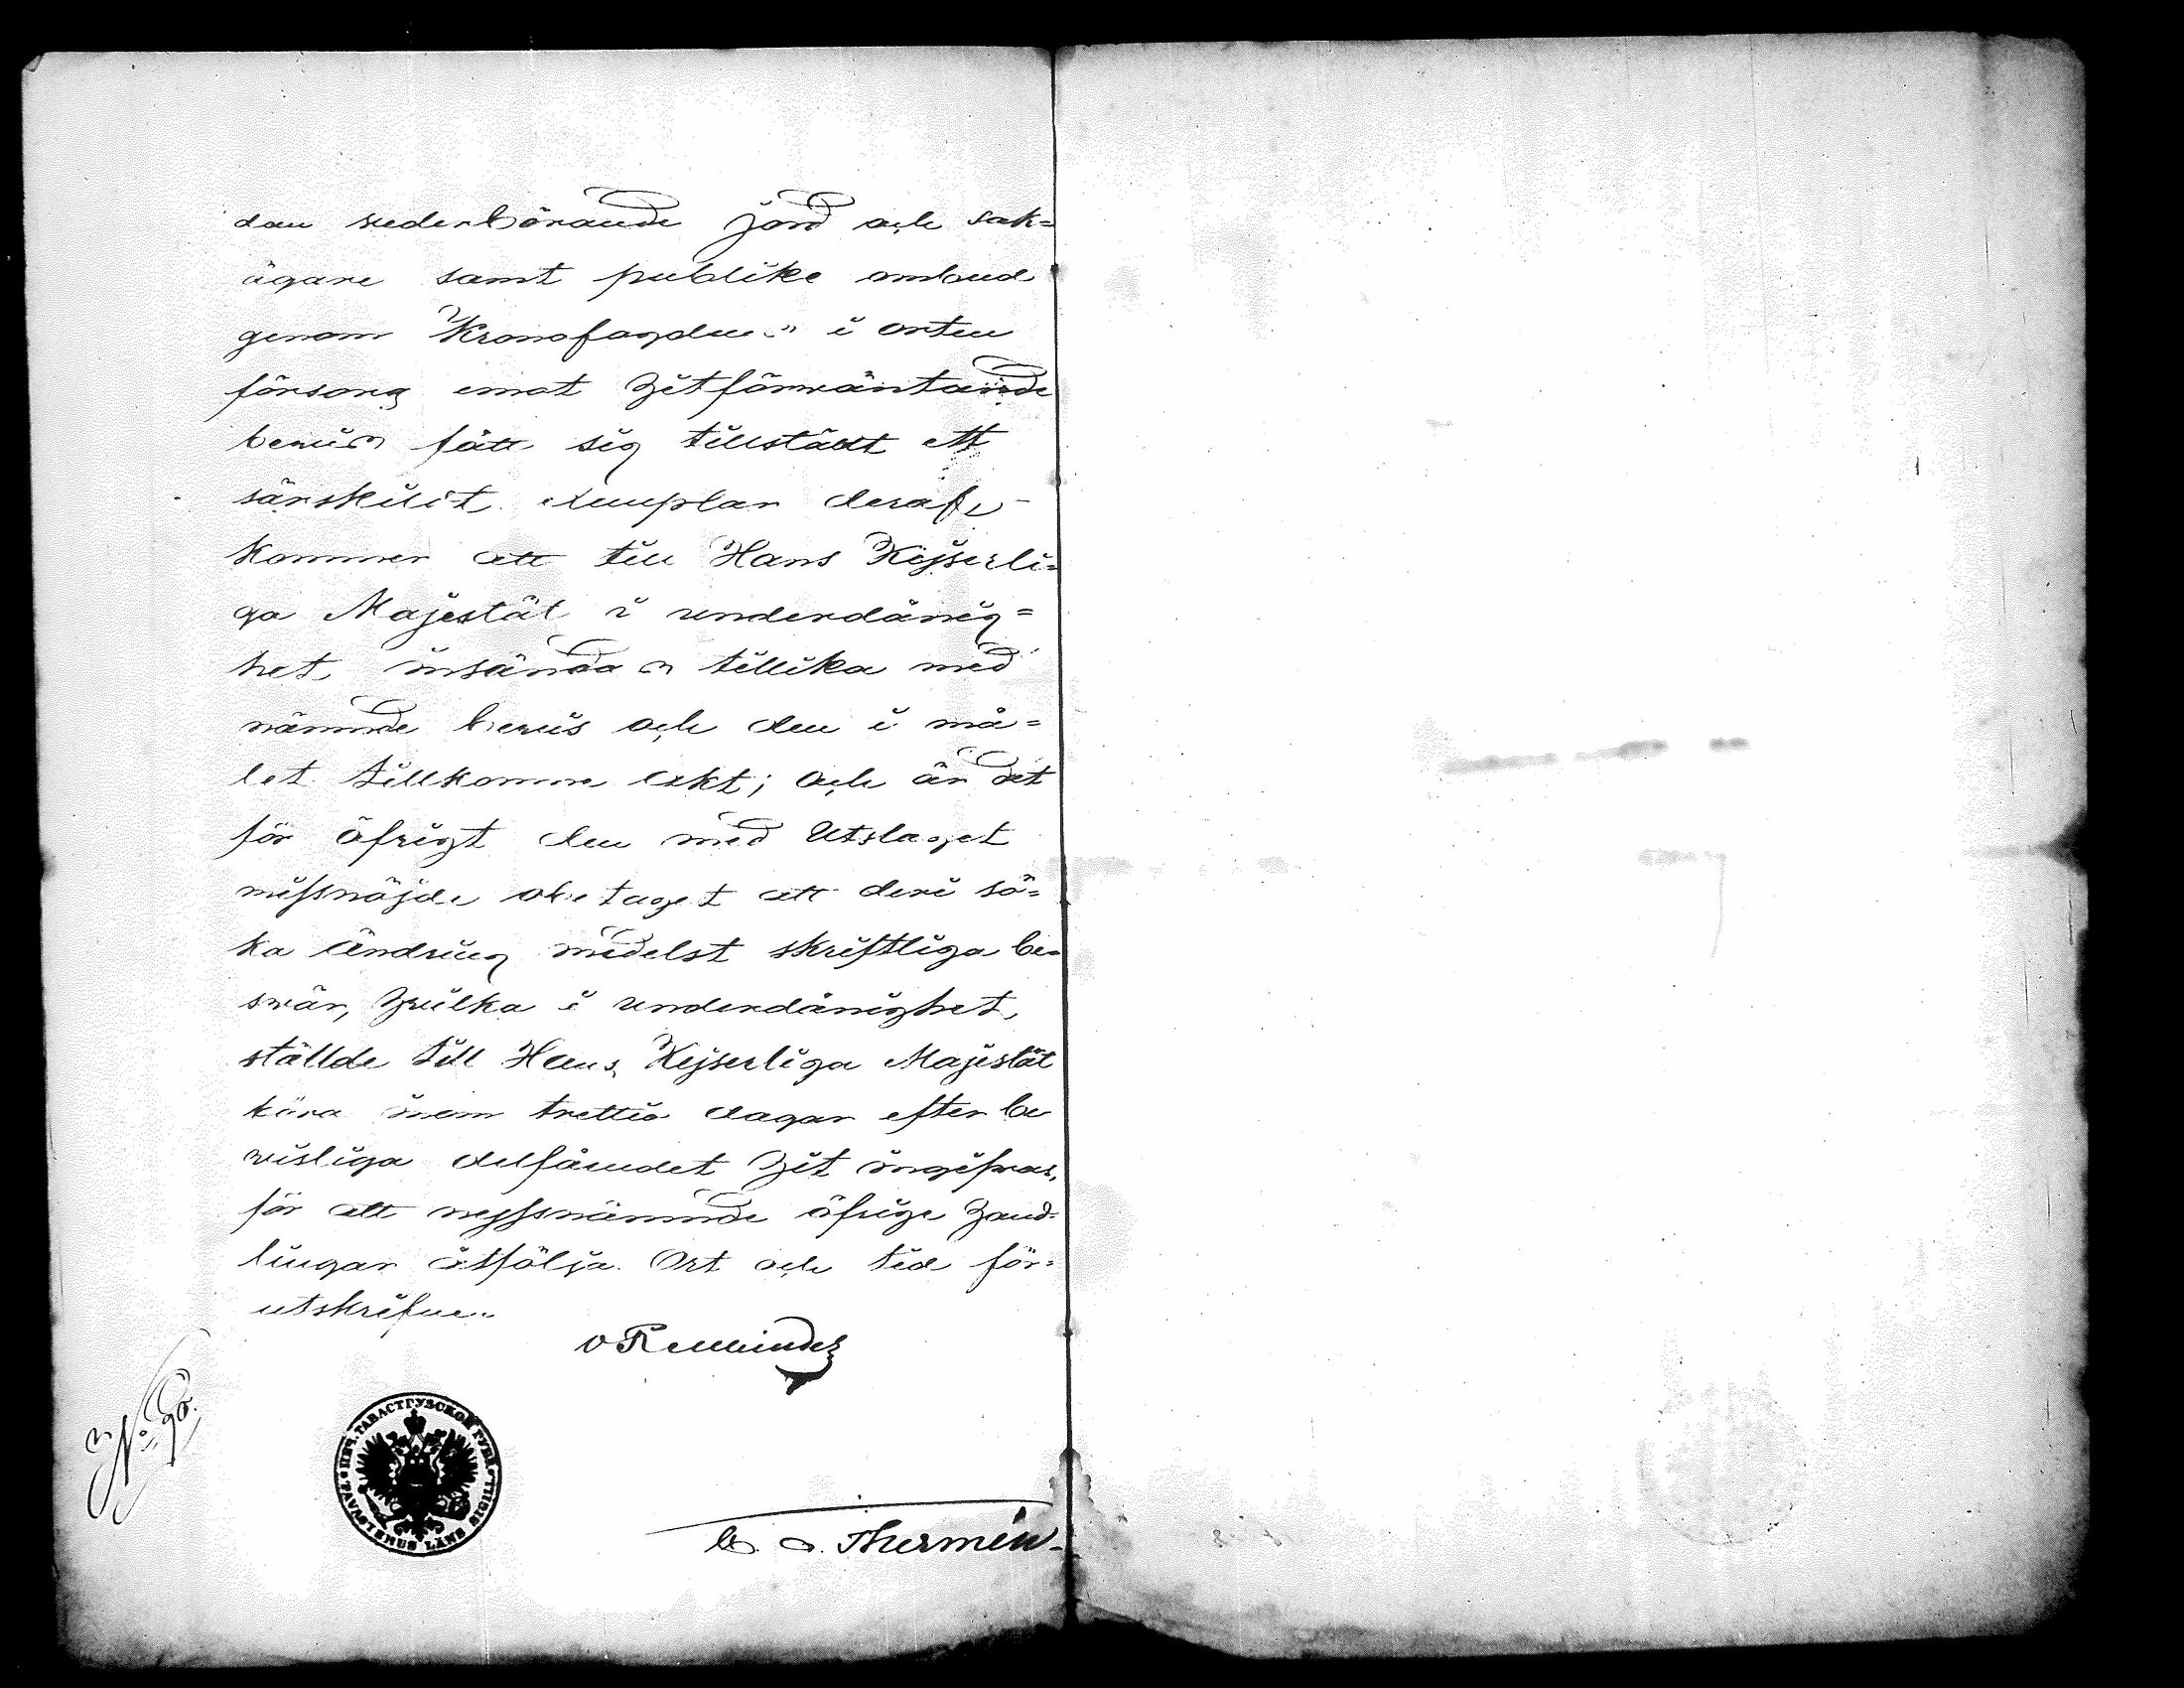 dan vederbörande jord och sak=
ägare samt publike ombud
genom Kronofogden i orten
försorg emot hitförväntande
bevis fått sig tillstäldt ett
särskilt exemplar deraf,
kommer att till Hans Kejserli=
ga Majestät i underdånig=
het insändas tillika med
nämnde bevis och den i må=
let tillkomne akt; och är det
för öfrigt den med Utslaget
missnöjde obetaget att deri sö=
ka ändring medelst skriftliga be=
svär, hvilka i underdånighet,
ställde till Hans Kejserliga Majestät
böra inom trettio dagar efter be
visliga delfåendet hit ingifvas,
för att nyssnämnde öfrige hand=
lingar åtfölja. Ort och tid för=
utskrifne.
O Rehbinder
No 90.
ПЕЧ. ТАВАСТГУЗСКОЙ ГУБ.
TAVASTEHUS LÄNS SIGILL
Thermén